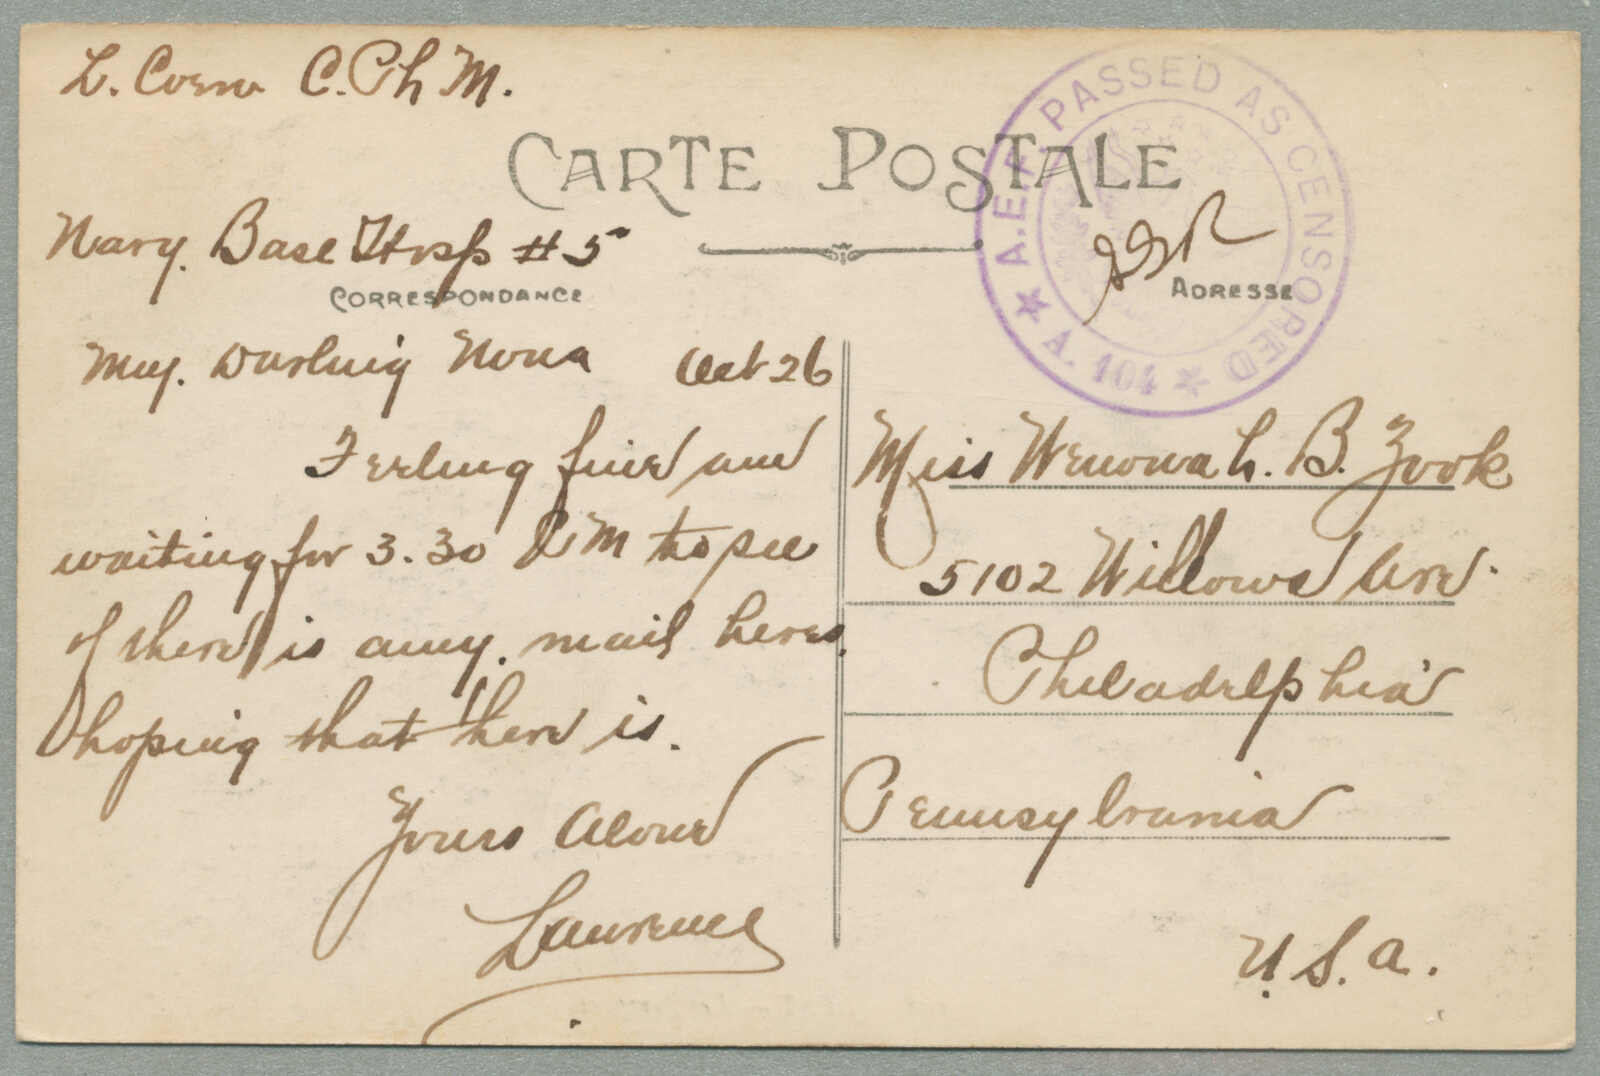 L. Corn C. Ph M.
CARTE POSTALE
A.E.F. PASSED AS CENSORED
A. 104
Navy. Base Hosp #5
CORRESPONDANCE
ADRESSE
My. Darling Nona Oct 26
Feeling fine and
waiting for 3.30 P M to see
if there is any. mail here,
hoping that there is.
Yours Alone
Lawrence
Miss Wenonah. B. Zook
5102 Willows Ave.
Philadelphia
Pennsylvania
U.S.A.